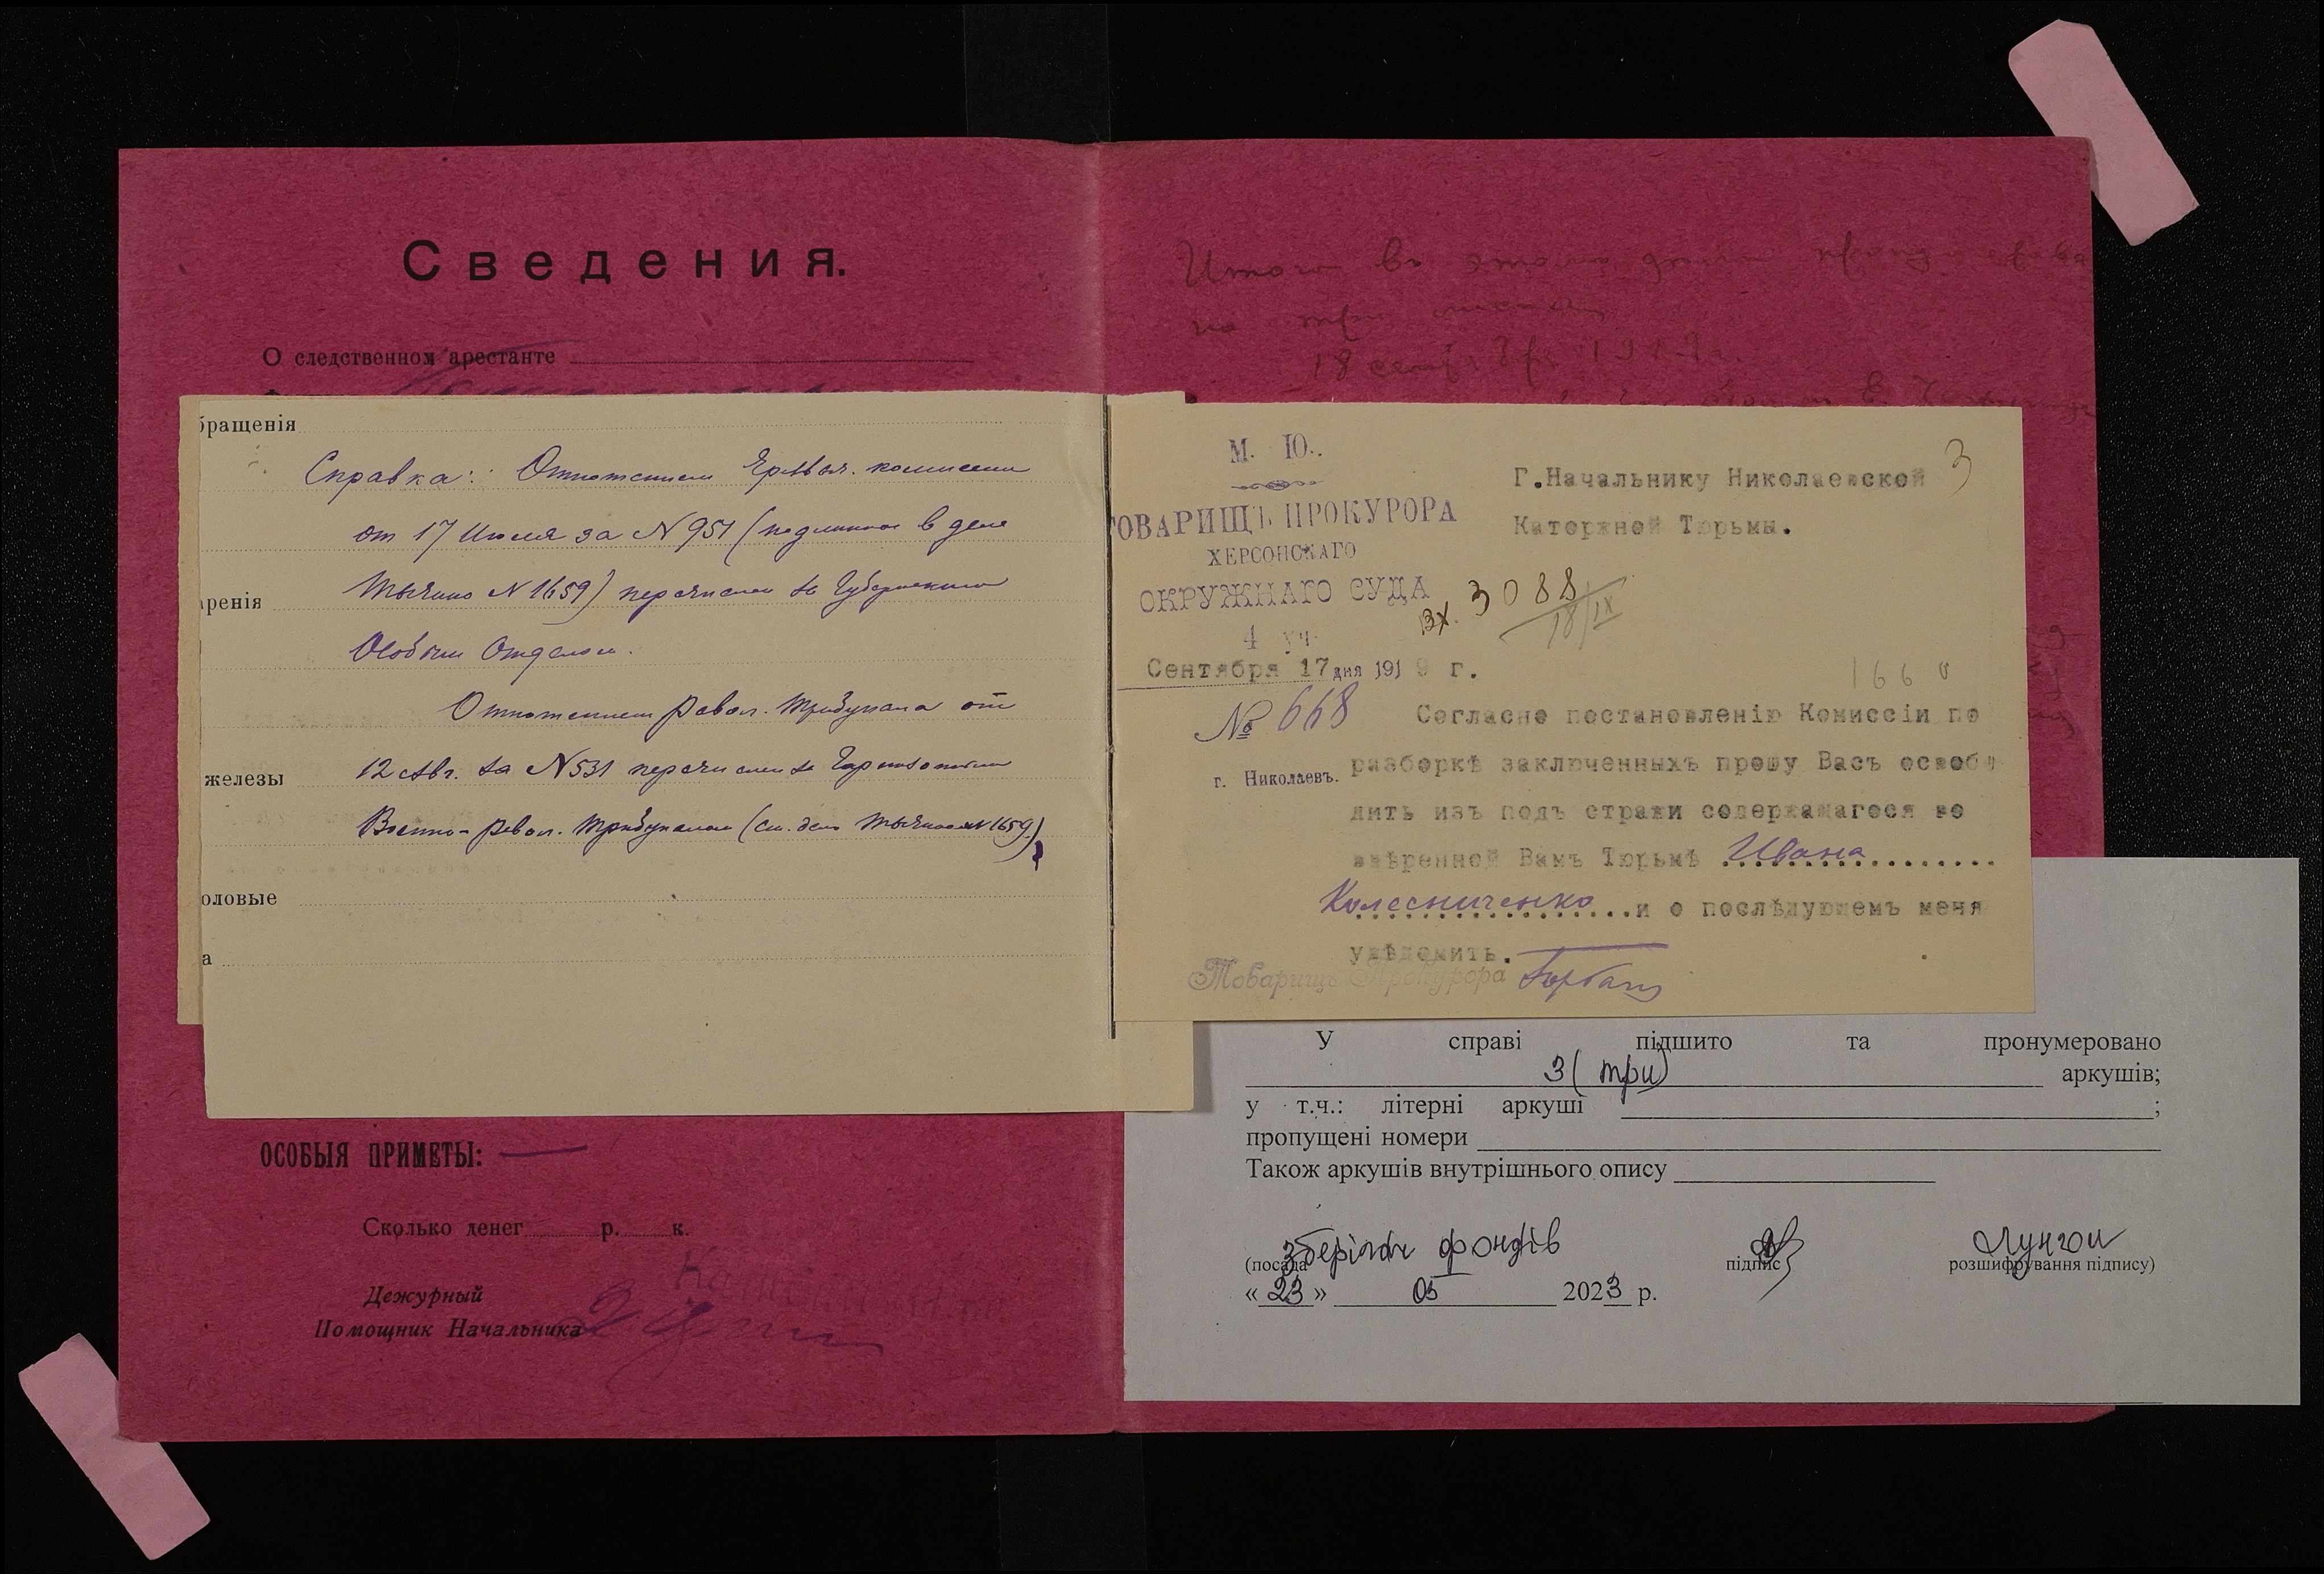 Сведения.
О следственном арестанте
бращенія
Справка: Отношением Чрезвыч. комиссии
от 17 Июля за № 951 (подлинное в деле
№ 1659) перечислен за Губернским
Особым Отделом.
аренія
Отношением Револ. Трибунала от
12 Авг. за № 531 перечислен за Гарнизонным
железы
Военно-Револ. Трибуналом (см. дело № 1659)
оловые
а
ОСОБЫЯ ПРИМЕТЫ: —
Сколько денег р. к.
Дежурный
Помощник Начальника
Итого в этом деле
на три
18 сентября 1919 г.
3
М. Ю.
ТОВАРИЩЪ ПРОКУРОРА
ХЕРСОНСКАГО
ОКРУЖНАГО СУДА
4 уч.
Сентября 17 дня 1919 г.
№ 668
г. Николаевъ.
Г.Начальнику Николаевской
Каторжной Тюрьмы.
Вх. 3088
18/IX
1660
Согласно постановленію Комиссіи по
разборкѣ заключенныхъ прошу Васъ освобо
дить изъ подъ стражи содержащагося во
ввѣренной Вамъ Тюрьмѣ Ивана
Колесниченко и о послѣдующемъ меня
увѣдомить.
Товарищъ Прокурора
У справі підшито та пронумеровано
3 (три) аркушів;
у т.ч.: літерні аркуші ;
пропущені номери
Також аркушів внутрішнього опису
зберігач фондів
(посада підпис розшифрування підпису)
« 23 » 05 2023 р.